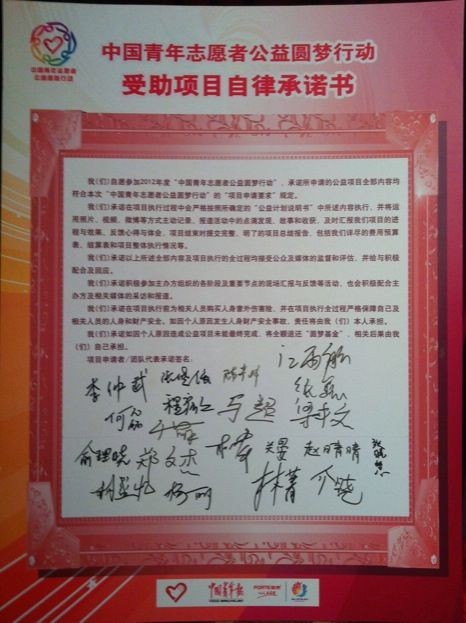 中国青年志愿者公益圆梦行动
受助项目自律承诺书
中国青年志愿者
公益圆梦行动
我(们)自愿参加2012年度“中国青年志愿者公益圆梦行动”,承诺所申请的公益项目全部内容均
符合本次“中国青年志愿者公益圆梦行动”的“项目申请要求”规定。
我(们)承诺在项目执行过程中会严格按照所确定的“公益计划说明书”中所述内容执行,并将运
用照片、视频、微博等方式主动记录、报道活动中的点滴发现、故事和收获,及时汇报我们项目的进
程与效果、反馈心得与体会,项目结束时提交完整、明了的项目总结报告,包括我们详尽的费用预算
表、结算表和项目整体执行情况等。
我(们)承诺以上所述全部内容及项目执行的全过程均接受公众及媒体的监督和评估,并给与积极
配合及回应。
我(们)承诺积极参加主办方组织的各阶段及重要节点的现场汇报与反馈等活动,也会积极配合主
办方及相关媒体的采访和报道。
我(们)承诺在项目执行前为相关人员购买人身意外伤害险,并在项目执行全过程严格保障自己及
相关人员的人身和财产安全。如因个人原因发生人身财产安全事故,责任将由我(们)本人承担。
我(们)承诺如因个人原因造成公益项目未能最终完成,将全额返还“圆梦基金”,相关后果由我
(们)自己承担。
项目申请者/团队代表承诺签名:
李仲武
何磊
马超
梁书文
俞理晓 郑文杰
关曼 赵晴晴
杨丽 林菁 介晓
中国青年报